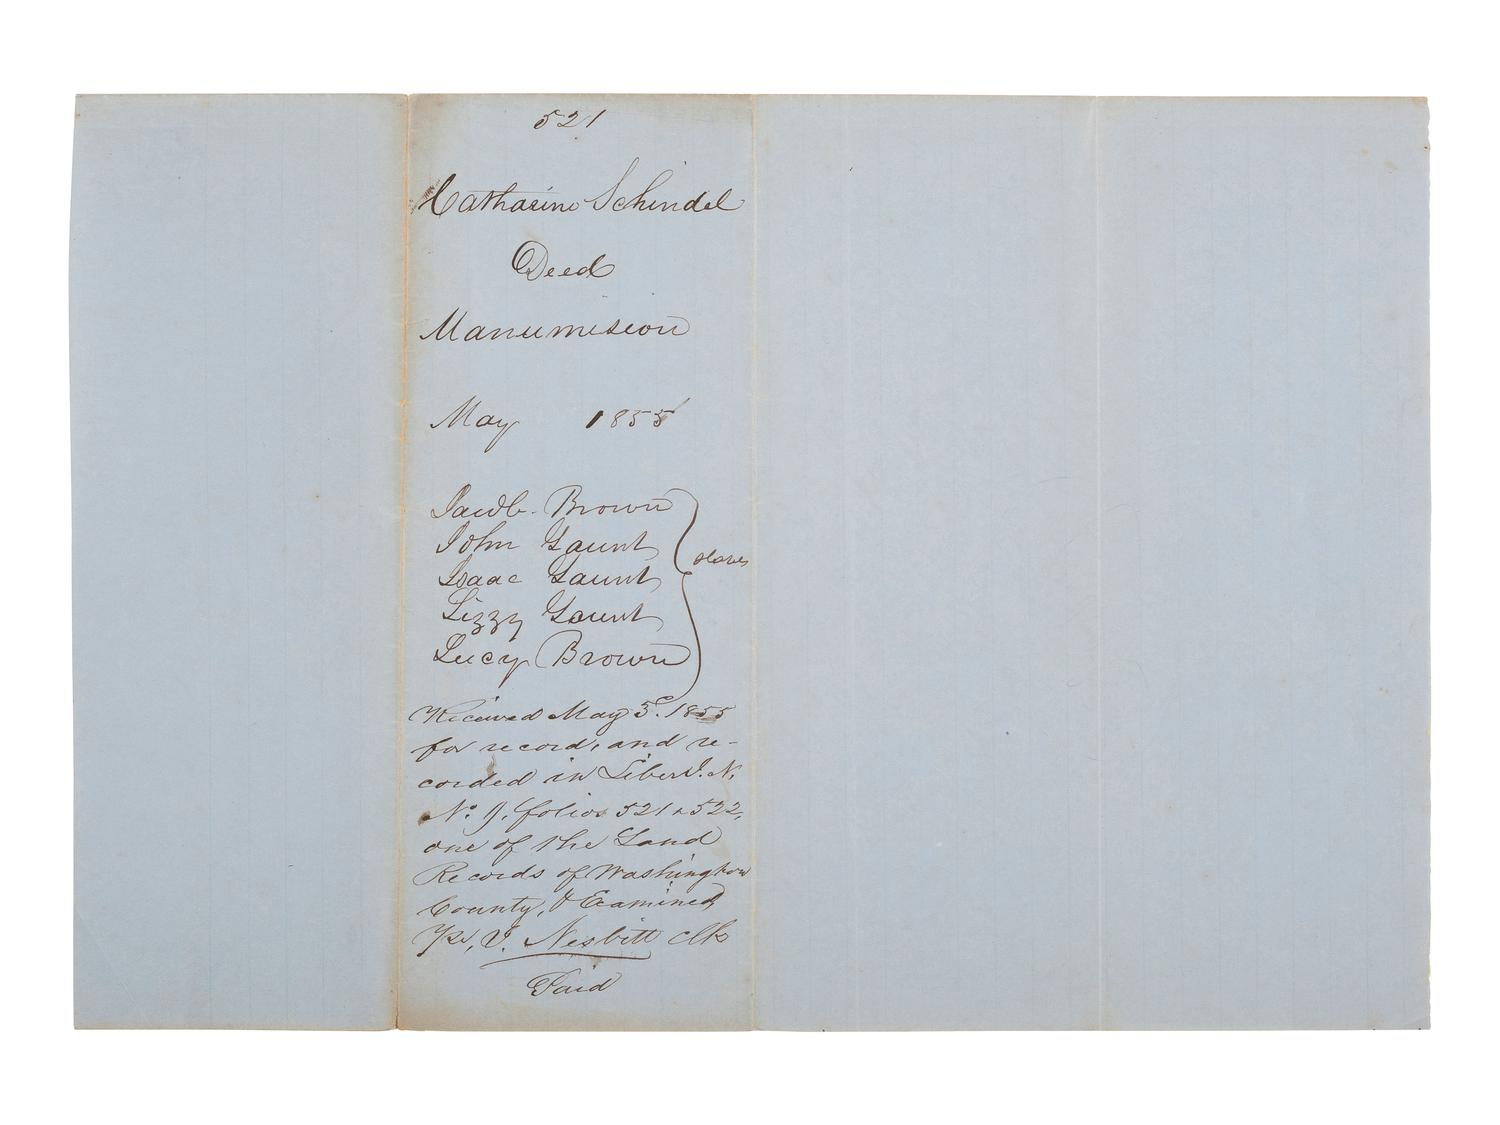 521
Catharine Schindel
Deed
Manumision
May 1855
Jacob Brown
John Gaunt
Isaac Gaunt
Lizzy Gaunt
Lucy Brown
slaves
Received May 5. 1855
for record, and re-
corded in Liber I. N.
No. 9. folios 521 & 522,
one of the Land
Records of Washington
County, & Examined,
Nesbitt clk
Paid